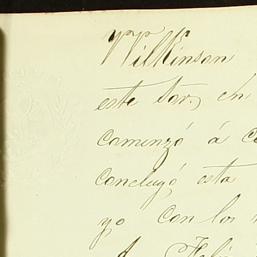 Wilkinson
este Sor. en
comenzó á co
concluyó esta
yo con los
A. Feli